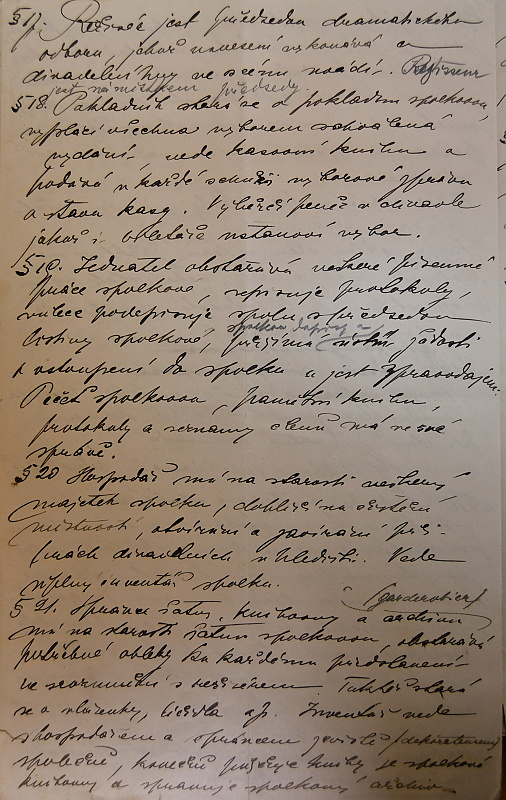 § 17. Režisér jest předsedou dramatického
odboru, jehož usnesení vykonává a
divadelní hry ve scénu uvádí. Režisseur
jest náměstkem předsedy.
§ 18. Pokladník stará se o pokladnu spolkovou,
vyplácí všechna výborem schválená
vydání, vede kasovní knihu a
podává v každé schůzi výborové zprávu
o stavu kasy. Výběrčí peněz v divadle
jakož i ustanoví výbor.
§ 19. Jednatel obstarává veškeré písemné
práce spolkové, sepisuje protokoly,
podepisuje spolu s předsedou
spolkové dopisy a
listiny spolkové, přijímá žádosti
o vstoupení do spolku a jest zpravodajem.
Pečeť spolkovou, pamětní knihu,
protokoly a seznamy členů má ve své
správě.
§ 20 Hospodář má na starosti veškerý
majetek spolku, dohlíží na čištění
místností, otvírání a zavírání při
hrách divadelních v hledišti. Vede
úplný inventář spolku.
(garderobier)
§ 21. Správce šatny, knihovny a archivu
má na starosti šatnu spolkovou, obstarává
potřebné obleky ku každému představení
ve srozumění s režisérem. Taktéž stará
se o vlásenky, líčidla a p. Inventář vede
s hospodářem a správcem jeviště (dekorací)
společně, konečně půjčuje knihy ze spolkové
knihovny a spravuje spolkový archiv.